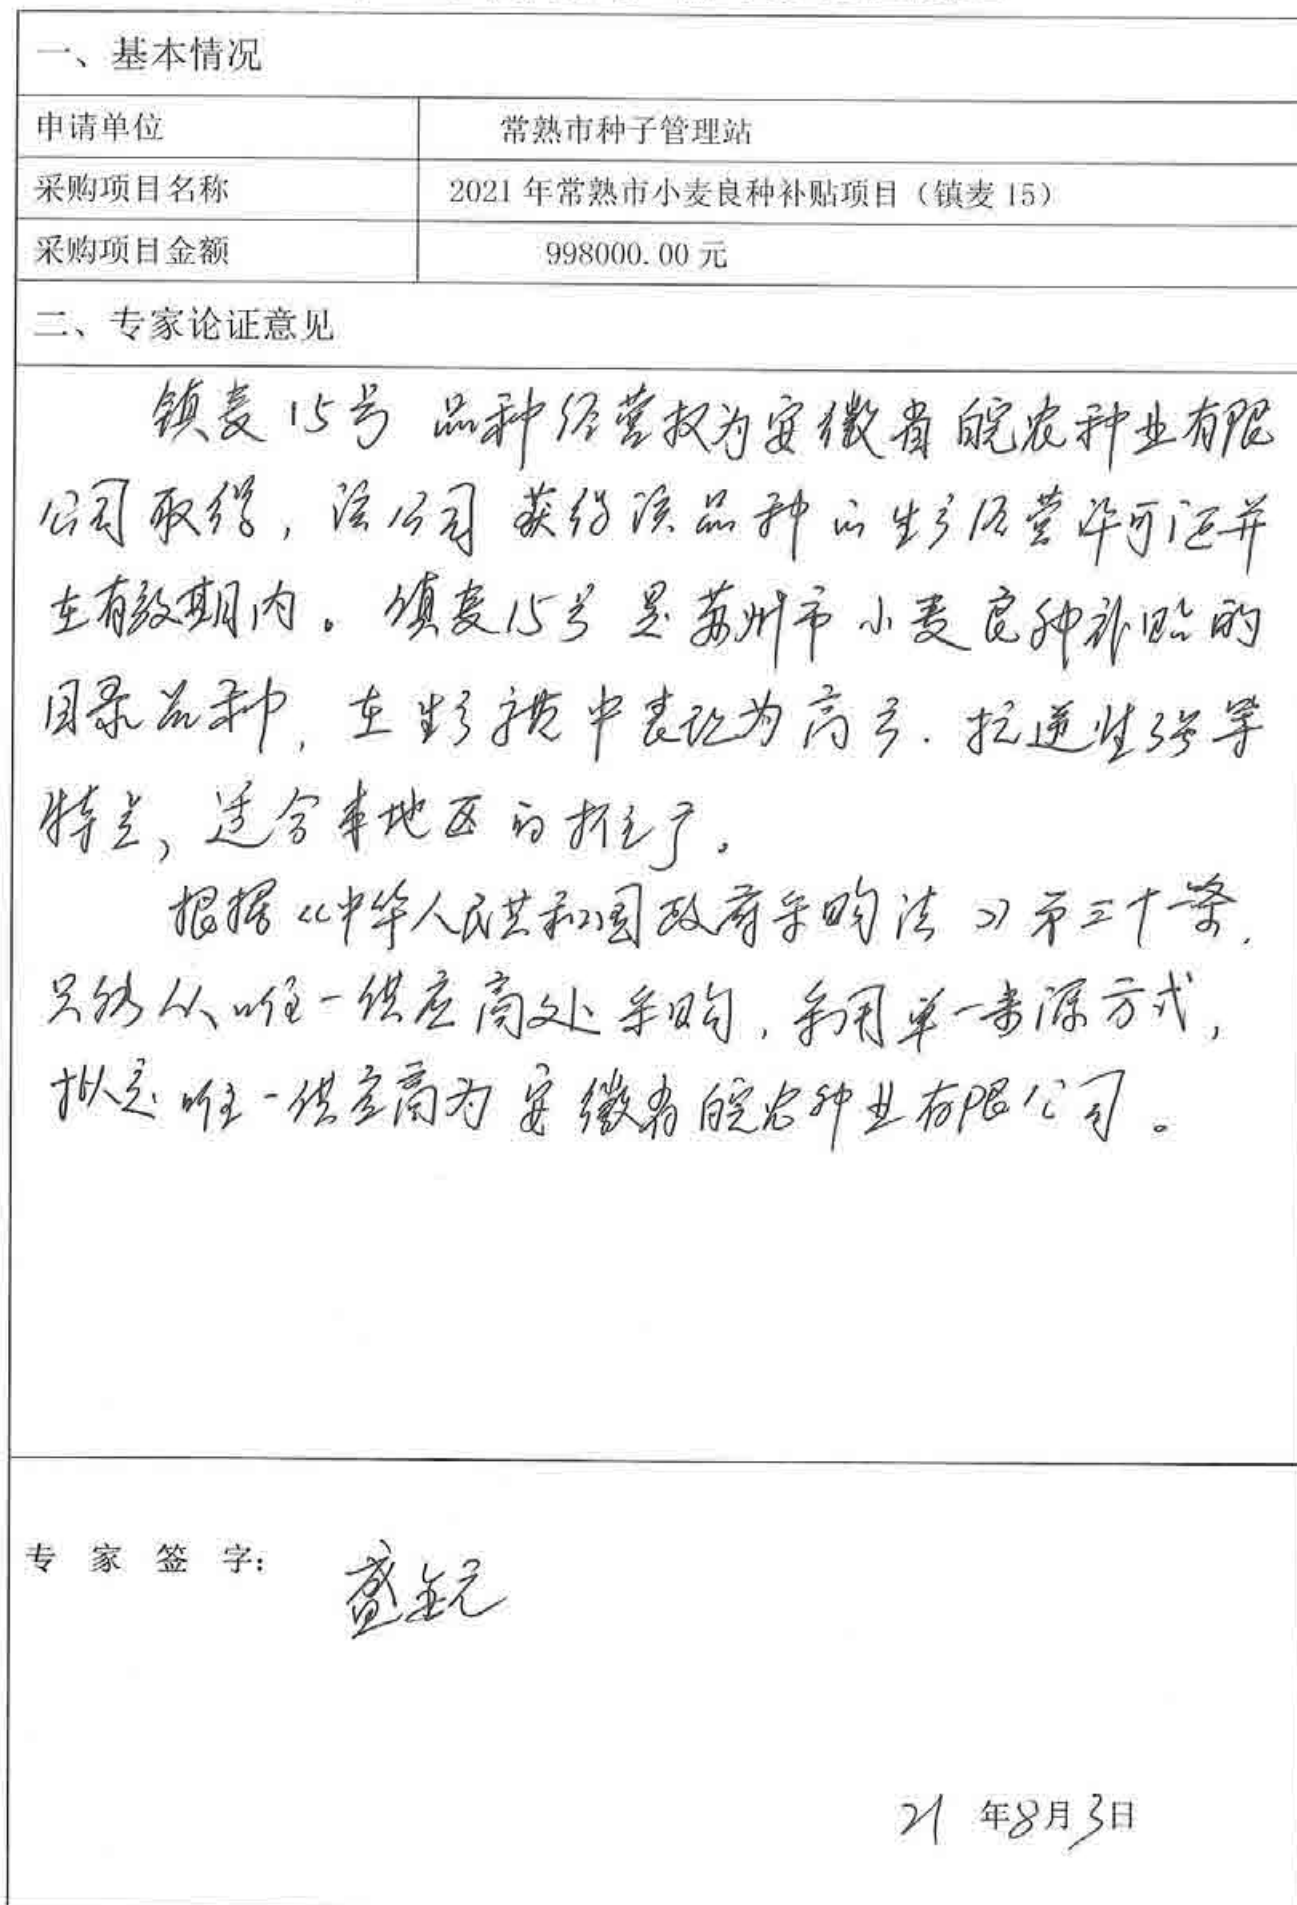 一、基本情况
申请单位 常熟市种子管理站
采购项目名称 2021年常熟市小麦良种补贴项目（镇麦15）
采购项目金额 998000.00元
二、专家论证意见
镇麦15号 品种经营权为安徽省皖农种业有限
公司取得，该公司获得该品种的生产经营许可证并
在有效期内。镇麦15号是苏州市小麦良种补贴的
目录品种，在生产示范中表现为高产.抗逆性强等
特点，适合本地区的推广。
根据《中华人民共和国政府采购法》第三十一条，
只能从唯一供应商处采购，采用单一来源方式，
拟定唯一供应商为安徽省皖农种业有限公司。
专家签字： 盛金元
21年8月3日